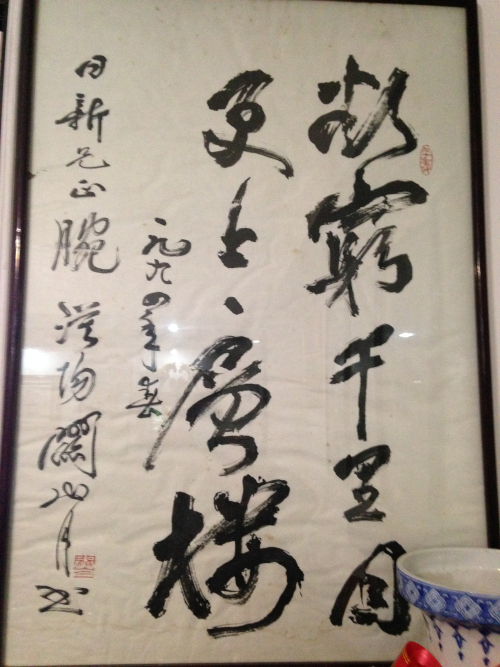 欲窮千里目
更上一層樓
一九九四年春
日新兄正腕 漠陽關山月書